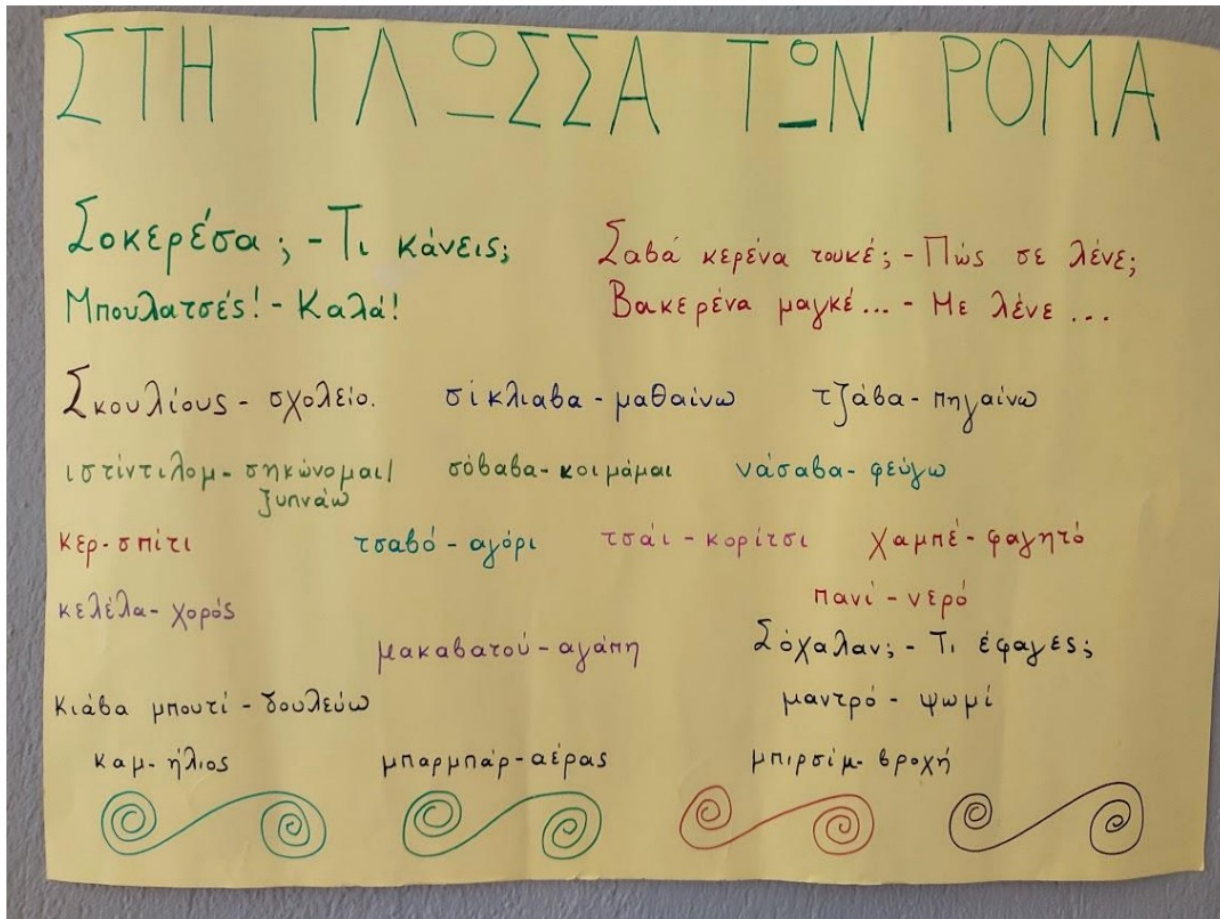 ΣΤΗ ΓΛΩΣΣΑ ΤΩΝ ΡΟΜΑ
Σοκερέσα; - Τι κάνεις;
Μπουλατσές! - Καλά!
Σαβά κερένα τουκέ; - Πώς σε λένε;
Βακερένα μαγκέ... - Με λένε ...
Σκουλίους - σχολείο. σίκλιαβα - μαθαίνω τζάβα - πηγαίνω
ιστίντιλομ - σηκώνομαι/ σόβαβα - κοιμάμαι νάσαβα - φεύγω
ξυπνάω
κερ - σπίτι τσαβό - αγόρι τσάι - κορίτσι χαμπέ - φαγητό
κελέλα - χορός πανί - νερό
μακαβατού - αγάπη Σόχαλαν; - Τι έφαγες;
Κιάβα μπουτί - δουλεύω μαντρό - ψωμί
καμ - ήλιος μπαρμπάρ - αέρας μπιρσίμ - βροχή